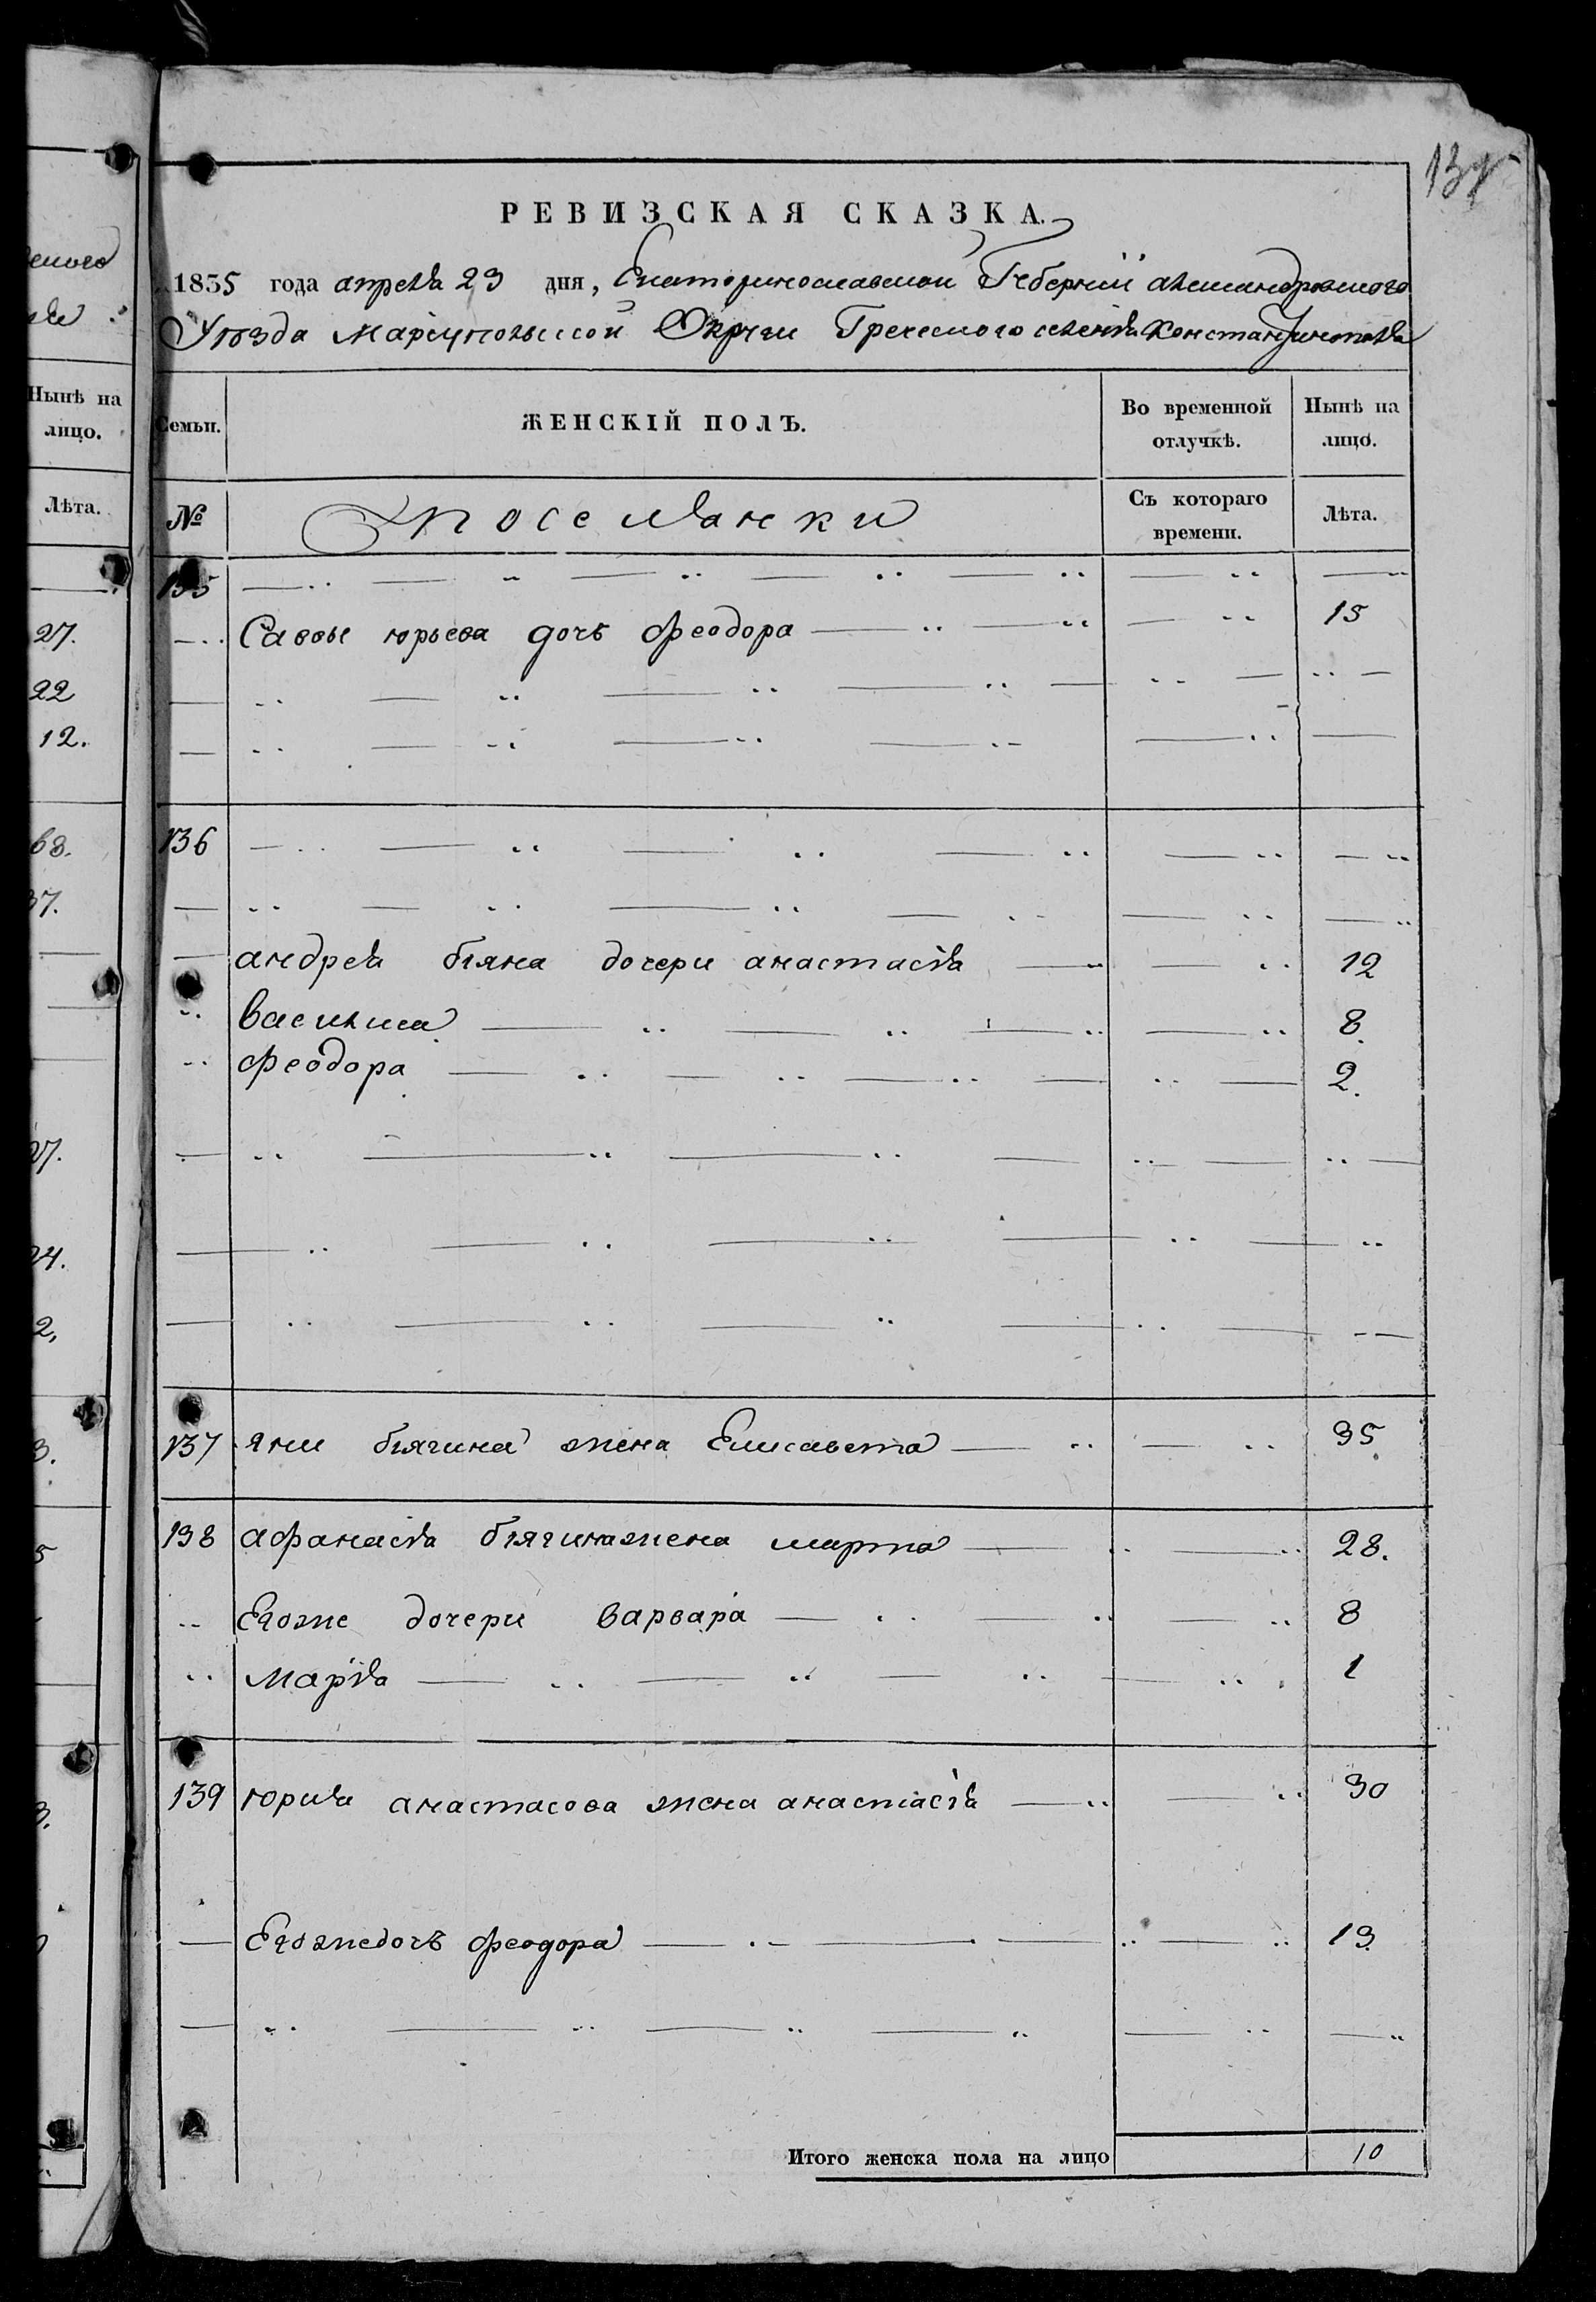 РЕВИЗСКАЯ СКАЗКА.
1835 года апреля 23 дня, Екатеринославской Губернии александровского
Уѣзда Маріупольской Округи Греческого селенія Константинополя
Нынѣ на лицо.
Лѣта.
27.
22
12.
Семьи.
ЖЕНСКІЙ ПОЛЪ.
Во временной отлучкѣ.
Нынѣ на лицо.
№
Поселянки
Съ котораго времени.
Лѣта.
135
Саввы юрьева дочь феодора 15
136
андрея біяна дочери анастасія 12
василиса 8
феодора 2.
137 яни біягина жена Елисавета 35
138 афанасія біягина жена марта 28.
Егоже дочери варвара 8
Марія 1
139 юрия анастасова жена анастасія 30
Егоже дочь феодора 13
Итого женска пола на лицо 10